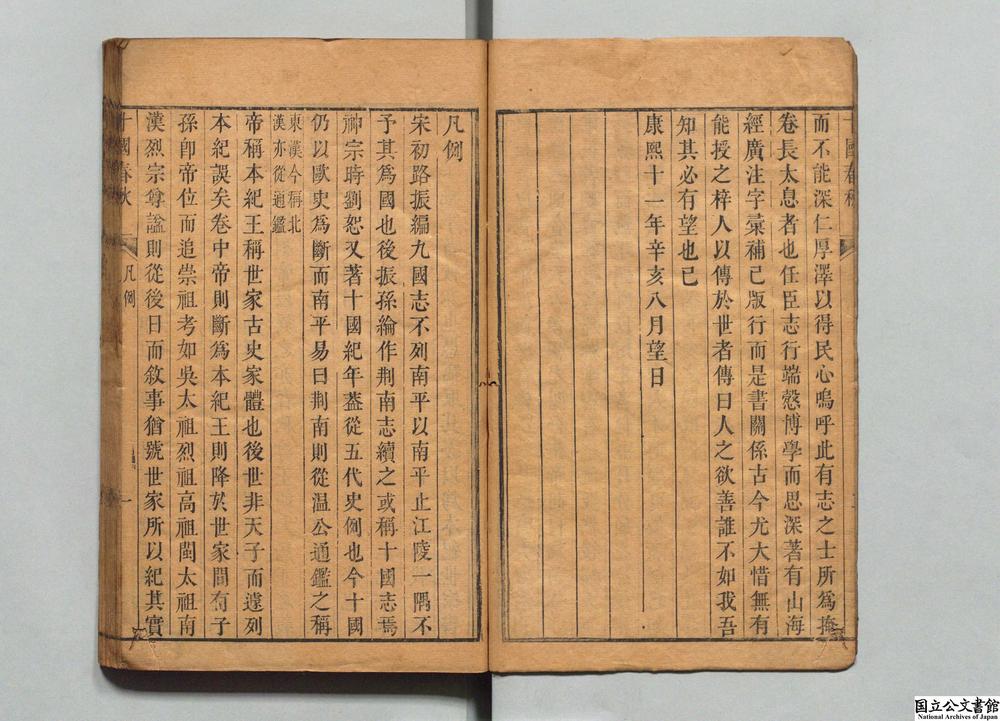 而不能深仁厚澤以得民心嗚呼此有志之士所爲掩
卷長太息者也任臣志行端慤博學而思深著有山海
經廣注字彙補已版行而是書關係古今尤大惜無有
能授之梓人以傳於世者傳曰人之欲善誰不如我吾
知其必有望也已
康熙十一年辛亥八月望日
凡例
宋初路振編九國志不列南平以南平止江陵一隅不
予其爲國也後振孫綸作荆南志續之或稱十國志焉
神宗時劉恕又著十國紀年葢從五代史例也今十國
仍以歐史爲斷而南平易曰荆南則從温公通鑑之稱
東漢今稱北
漢亦從通鑑
帝稱本紀王稱世家古史家體也後世非天子而遽列
本紀誤矣卷中帝則斷爲本紀王則降於世家間有子
孫卽帝位而追崇祖考如吳太祖烈祖高祖閩太祖南
漢烈宗尊謚則從後日而敘事猶號世家所以紀其實
十國春秋
凡例
一
国立公文書館
National Archives of Japan